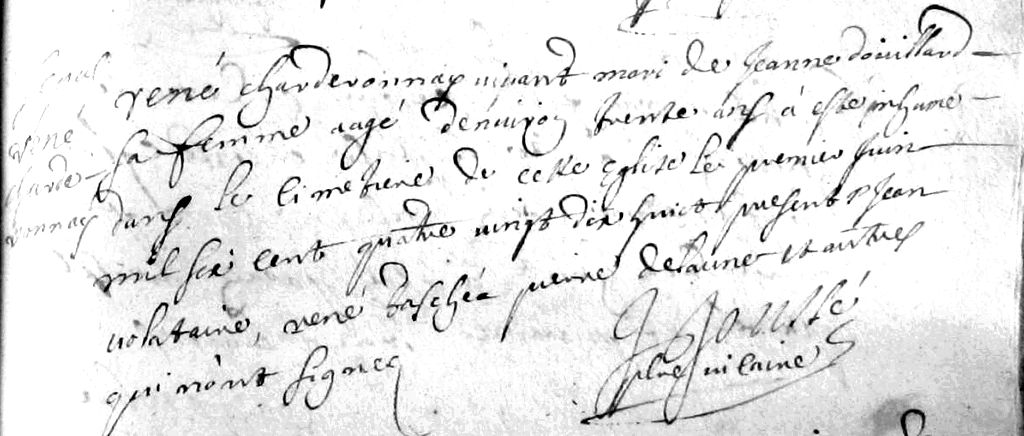 rené
charde
ronnay
rené charderonnay vivant mari de Jeanne doüillard
sa femme aagé d'enuiron trente ans à esté inhumé
dans le cimetiere de cette Eglise le premier Juin
mil six cent quatre vingt dix huict present Jean
volataine, rené Paschéa pierre delaune et autres
qui n'ont signer
vicaire